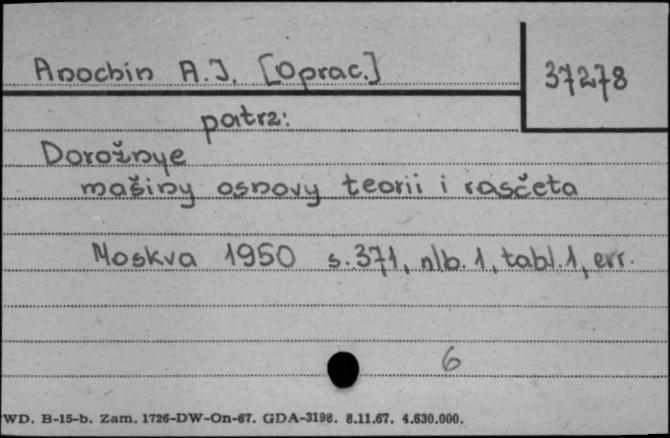 Anochin A.J. [Oprac.]
37278
patrz:
Dorožnye
mašiny osnovy teorii i rasčeta
Moskva 1950 s.371, nlb.1, tabl.1, err.
6
WD. B-15-b. Zam. 1726-DW-On-67. GDA-3198. 8.11.67. 4.630.000.